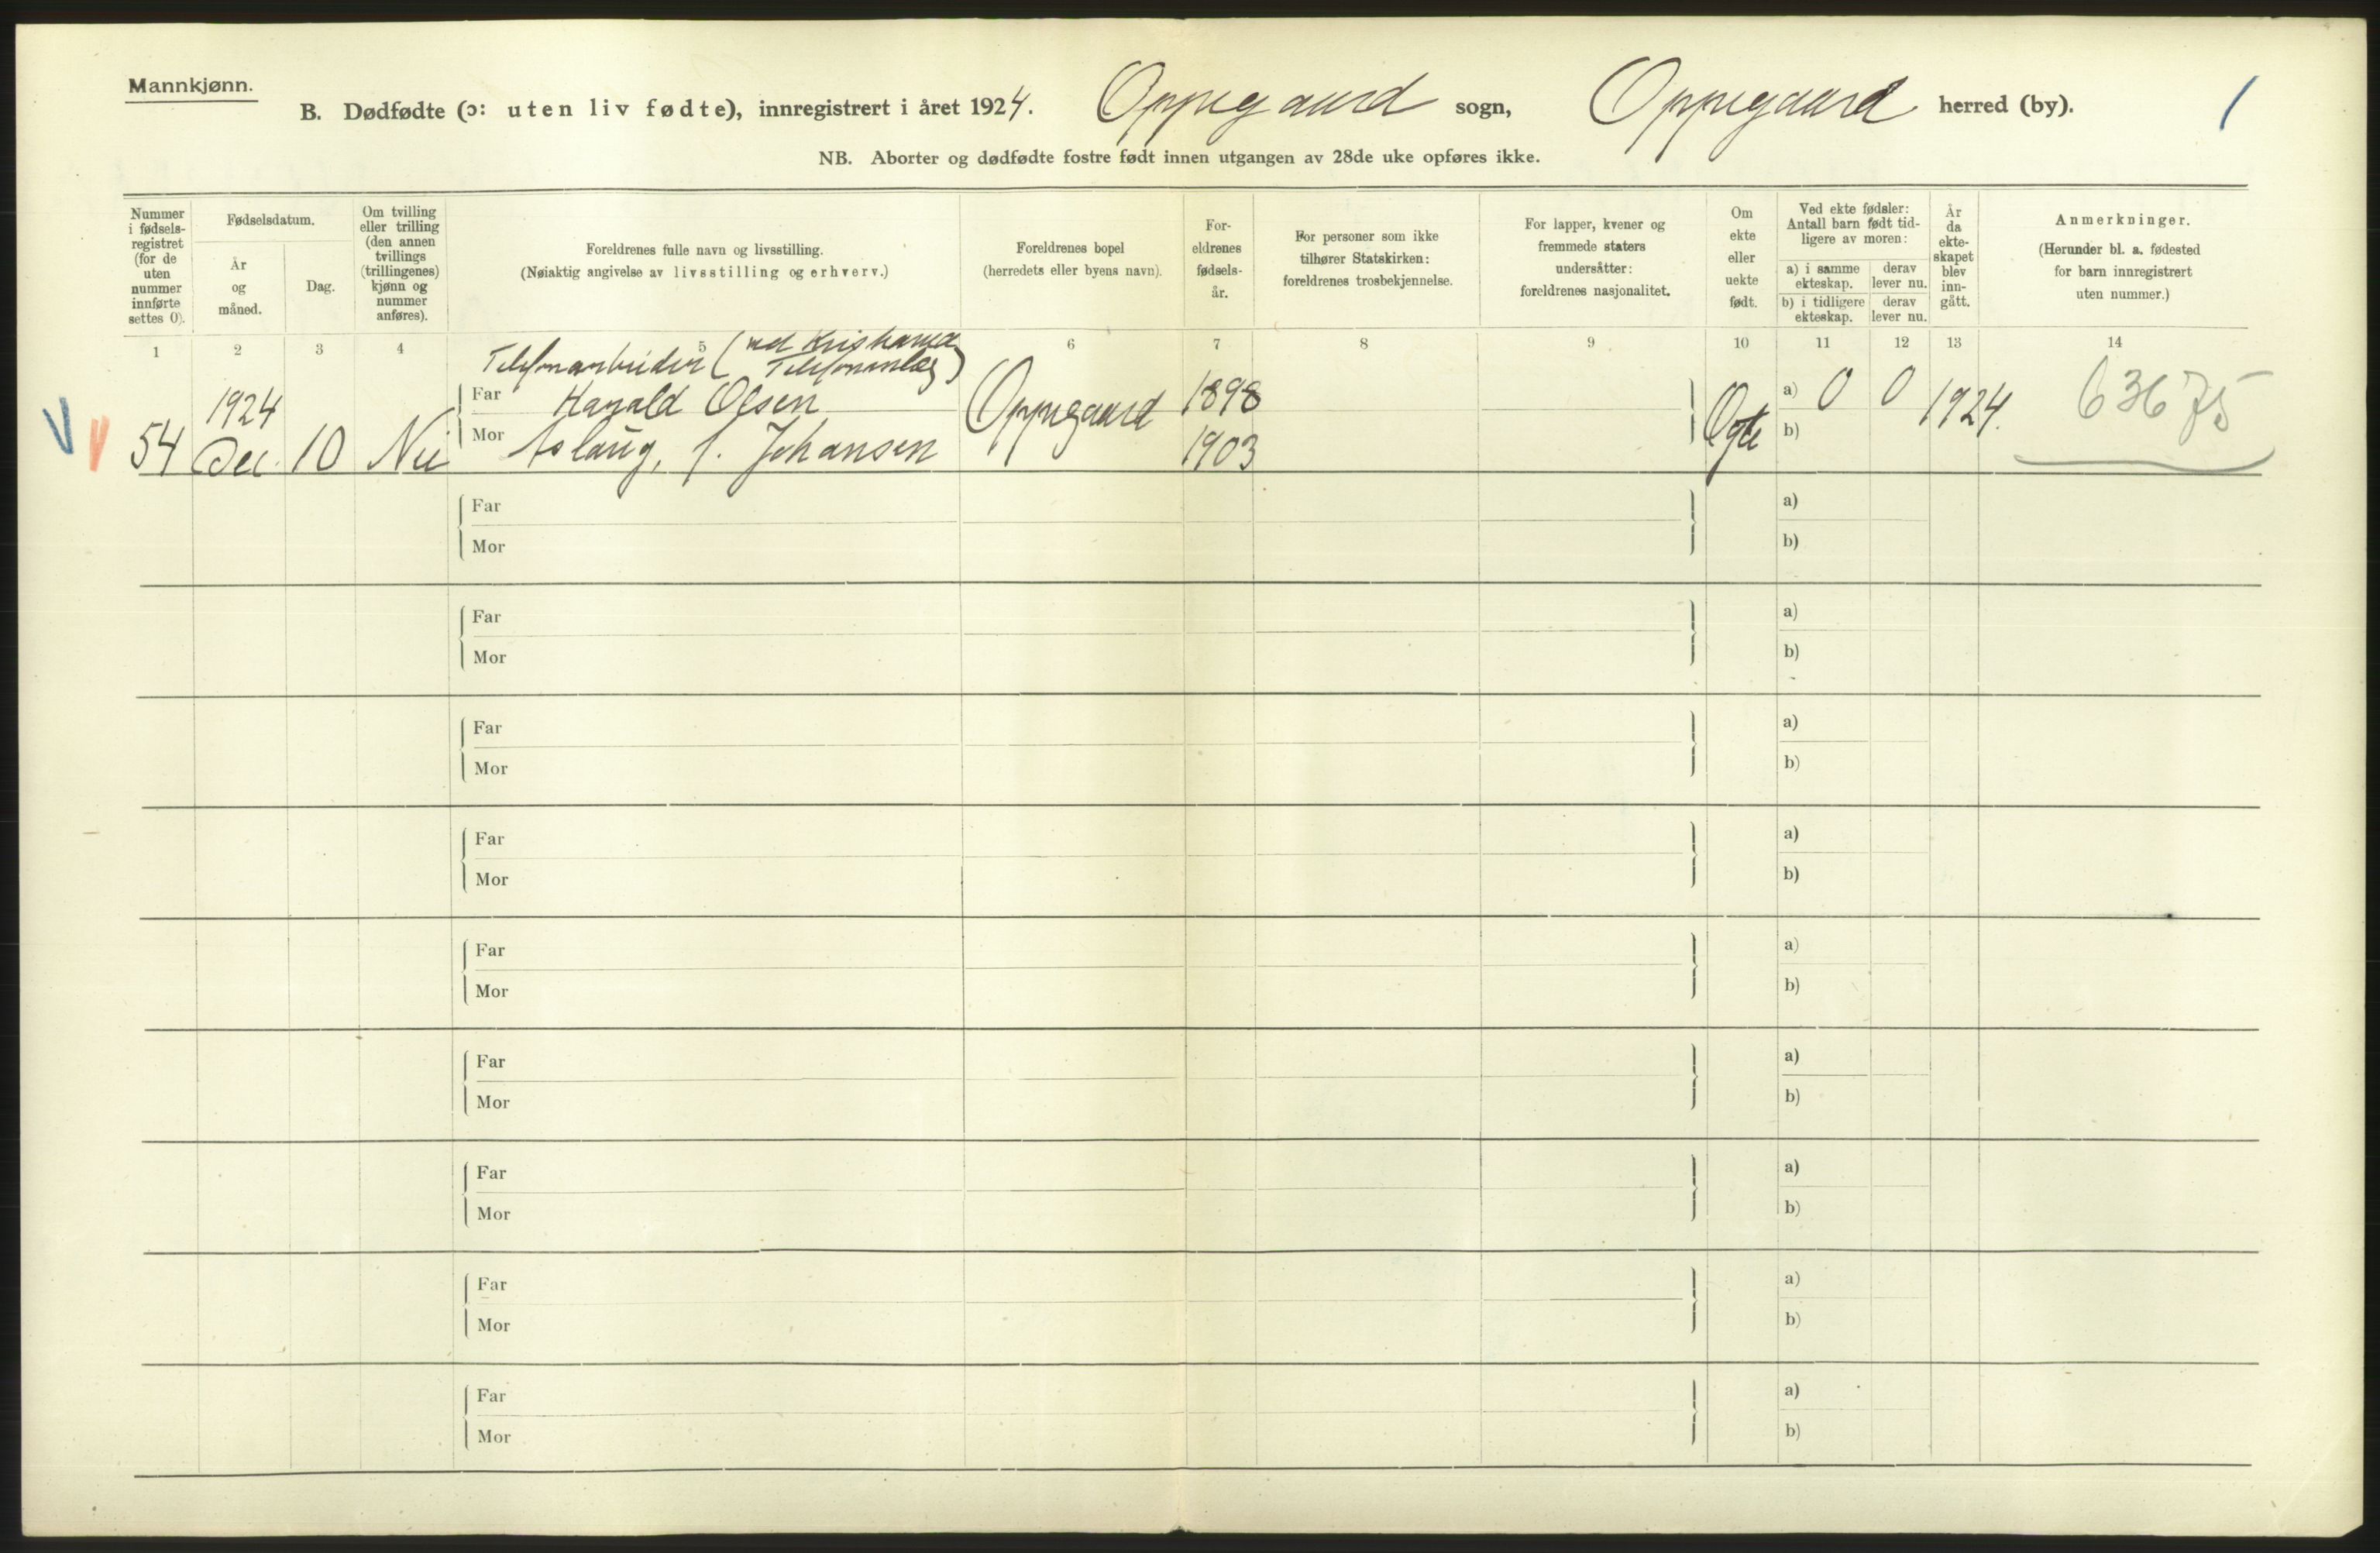 Mannkjønn.
B. Dødfødte (ɔ: uten liv fødte), innregistrert i året 1924. Oppegaard sogn, Oppegaard herred (by). 1
NB. Aborter og dødfødte fostre født innen utgangen av 28de uke opføres ikke.
Nummer i fødsels-registret (for de uten nummer innførte settes 0).
Fødselsdatum.
År og måned.
Dag.
Om tvilling eller trilling (den annen tvillings (trillingenes) kjønn og nummer anføres).
Foreldrenes fulle navn og livsstilling.
(Nøiaktig angivelse av livsstilling og erhverv.)
Foreldrenes bopel
(herredets eller byens navn).
For-eldrenes fødsels-år.
For personer som ikke tilhører Statskirken: foreldrenes trosbekjennelse.
For lapper, kvener og fremmede staters undersåtter: foreldrenes nasjonalitet.
Om ekte eller uekte født.
Ved ekte fødsler: Antall barn født tid-ligere av moren:
a) i samme ekteskap.
derav lever nu.
b) i tidligere ekteskap.
derav lever nu.
År da ekte-skapet blev inn-gått.
Anmerkninger.
(Herunder bl. a. fødested for barn innregistrert uten nummer.)
1 2 3 4 5 6 7 8 9 10 11 12 13 14
Telefonarbeider (ved Kristiania Telefonanlæg)
54 1924 Dec. 10 Nei
Far Harald Olsen Oppegaard 1898 Egte a) 0 0 1924. 63675
Mor Aslaug, f. Johansen 1903 b)
Far a)
Mor b)
Far a)
Mor b)
Far a)
Mor b)
Far a)
Mor b)
Far a)
Mor b)
Far a)
Mor b)
Far a)
Mor b)
Far a)
Mor b)
Far a)
Mor b)